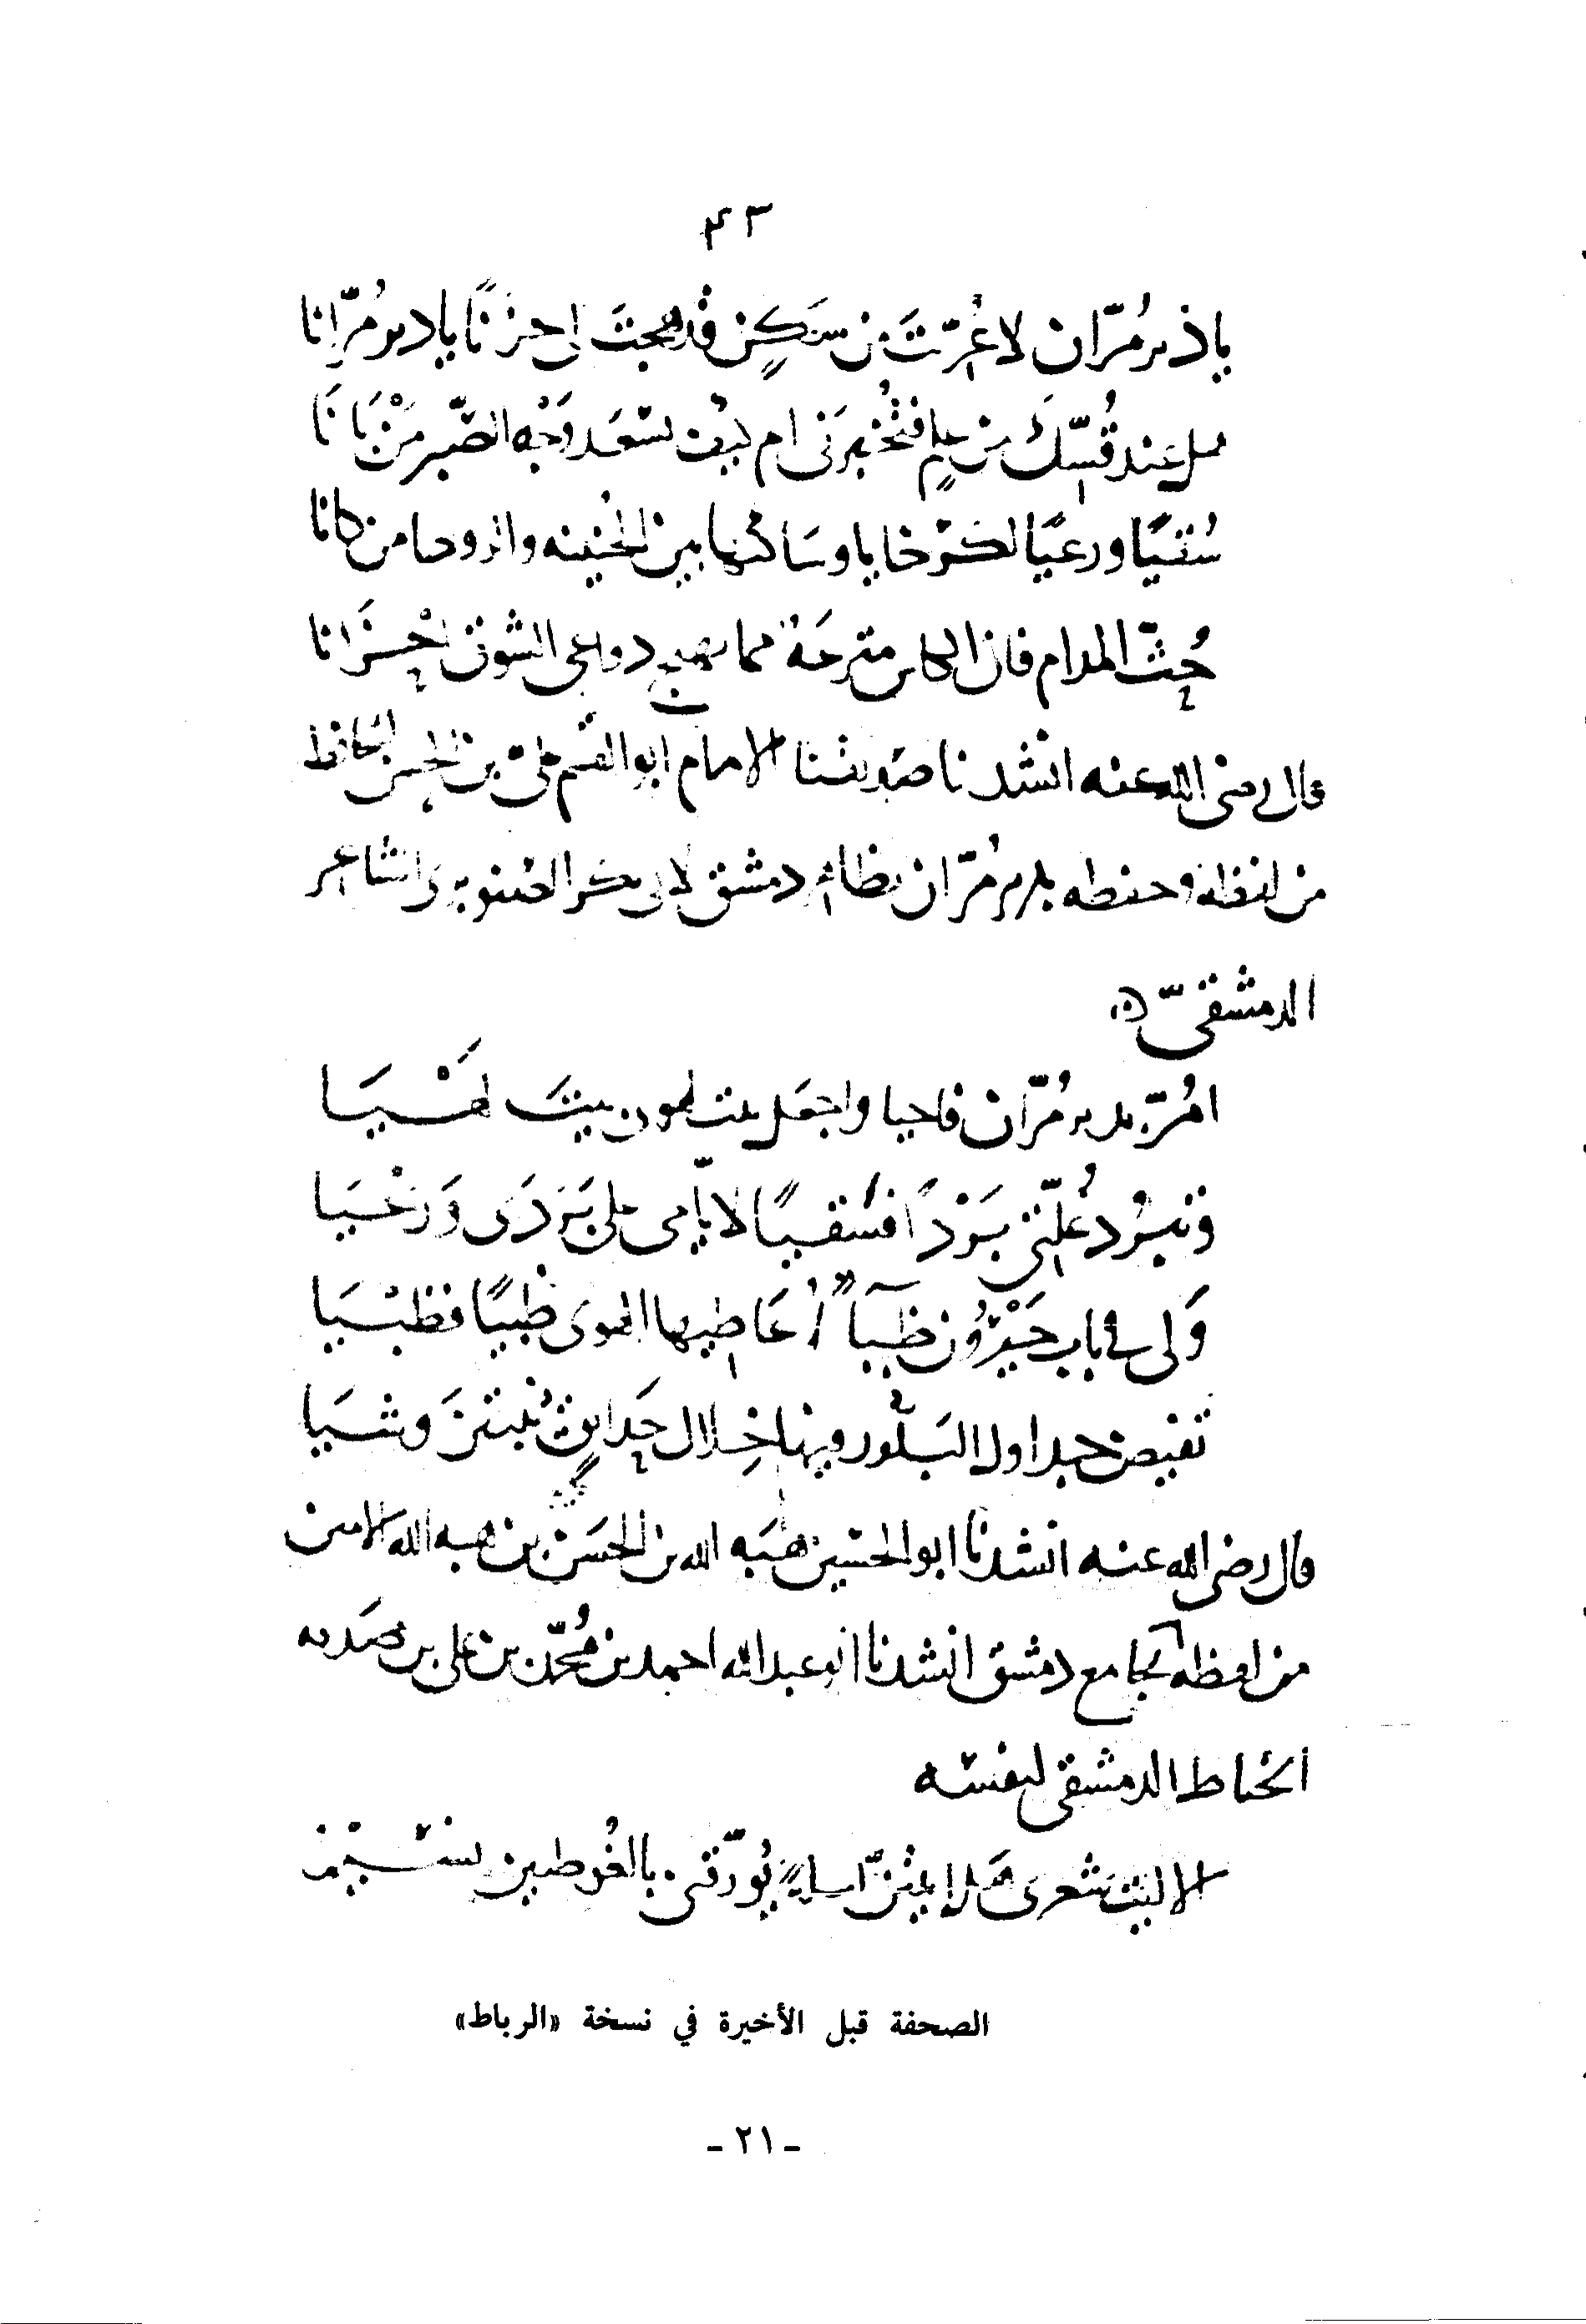 ٤٣
يا دير مُرّان لا عُرّيتَ من سَكَنٍ قد هجتَ لى حزنًا يا دير مُرّانا
هل عند قُسّكَ من علمٍ فتُخبِرَنى ام كيف يسْعَد وَجْه الصّبر مَنْ بَانَا
سُقيًا ورعيًا لكرْخايا وساكنها بين الجنينه والروحا من كانا
حُثّ المدام فان الكاس مترعَة مما يهيج دواعى الشوق احْزَانا
قال رضى الله عنه انشدنا صديقنا الامام ابو القسم علىّ بن الحسن الحافظ
من لفظه وحفظه بدير مُرّان بظاهر دمشق لابى بكر الصنوبرى الشاعر
الدمشقىّ ه
امُرّ بدير مُرّان فاحيا واجعل بيت لهوى بيتَ لَهْيَا
وتبرُد غُلّتى بَرْدًا فسُقيًا لايّامى على بَرَدَى وَرَعْيَا
وَلى فى باب جَيْرُون ظبآً أُعَاطيها الهوى ظبيًا فظبْيَا
تفيض جداول البَلّور فيها خِلال حَدايقٍ يُنبتنَ وشيَا
قال رضى الله عنه انشدنا ابو الحسْين هبَه الله بن الحسَن بن هبه الله الامين
من لفظه بجامع دمشق انشدنا ابو عبد الله احمد بن مُحمّد بن على بن صَدقه
الخياط الدمشقى لنفسْه
الا ليت شعرى هَل ابيتنّ ليلةً يُورّقنى بالغُوطتين نسْيم
الصحفة قبل الأخيرة في نسخة «الرباط»
- ٢١ -